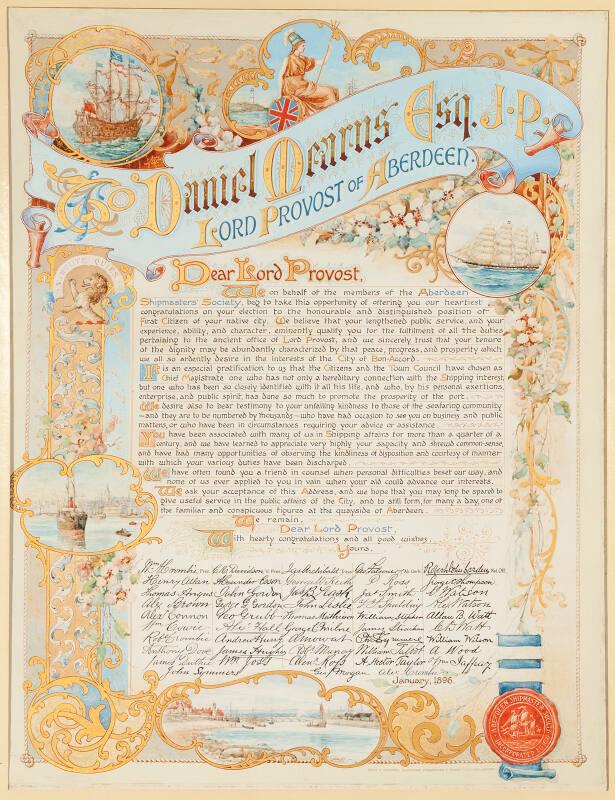 To Daniel Mearns Esq. J.P.
Lord Provost of Aberdeen.
Dear Lord Provost,
We on behalf of the members of the Aberdeen
Shipmasters' Society, beg to take this opportunity of offering you our heartiest
congratulations on your election to the honourable and distinguished position of
First Citizen of your native city. We believe that your lengthened public service, and your
experience, ability, and character, eminently qualify you for the fulfilment of all the duties
pertaining to the ancient office of Lord Provost, and we sincerely trust that your tenure
of the dignity may be abundantly characterized by that peace, progress, and prosperity which
we all so ardently desire in the interests of the City of Bon-Accord.
It is an especial gratification to us that the Citizens and the Town Council have chosen as
Chief Magistrate one who has not only a hereditary connection with the Shipping interest,
but one who has been so closely identified with it all his life, and who, by his personal exertions,
enterprise, and public spirit, has done so much to promote the prosperity of the port.
We desire also to bear testimony to your unfailing kindness to those of the seafaring community
—and they are to be numbered by thousands—who have had occasion to see you on business and public
matters, or who have been in circumstances requiring your advice or assistance.
You have been associated with many of us in Shipping affairs for more than a quarter of a
century, and we have learned to appreciate very highly your sagacity and shrewd common-sense,
and have had many opportunities of observing the kindliness of disposition and courtesy of manner
with which your various duties have been discharged.
We have often found you a friend in counsel when personal difficulties beset our way, and
none of us ever applied to you in vain when your aid could advance our interests.
We ask your acceptance of this Address, and we hope that you may long be spared to
give useful service in the public affairs of the City, and to still form, for many a day, one of
the familiar and conspicuous figures at the quayside of Aberdeen.
We remain,
Dear Lord Provost,
With hearty congratulations and all good wishes,
Yours,
Wm Crombie, Pres. Davidson V. Pres. Archibald
Henry Allan Alexander Esson George D. Ross George Thompson
Thomas Angus John Gordon Jas Smith Watson
Alex Brown George F Gordon John Leslie Spalding Alex Watson
Alexr Connor Geo Grubb Thomas Mathieson William Stephen Allan B. Watt
Cowie Alex Hall George C Milne James Strachan Watt
Robt Crombie Andrew A Mowat William Watson
Anthony Dove James Hughes Robt Murray William Talbot A Wood
James Duthie Wm Jost Alexr Ross A Hector Taylor Wm Jaffray
John Symmers Geo Morgan Alex Crombie
January, 1896.
Aberdeen Shipmaster Society
Incorporated